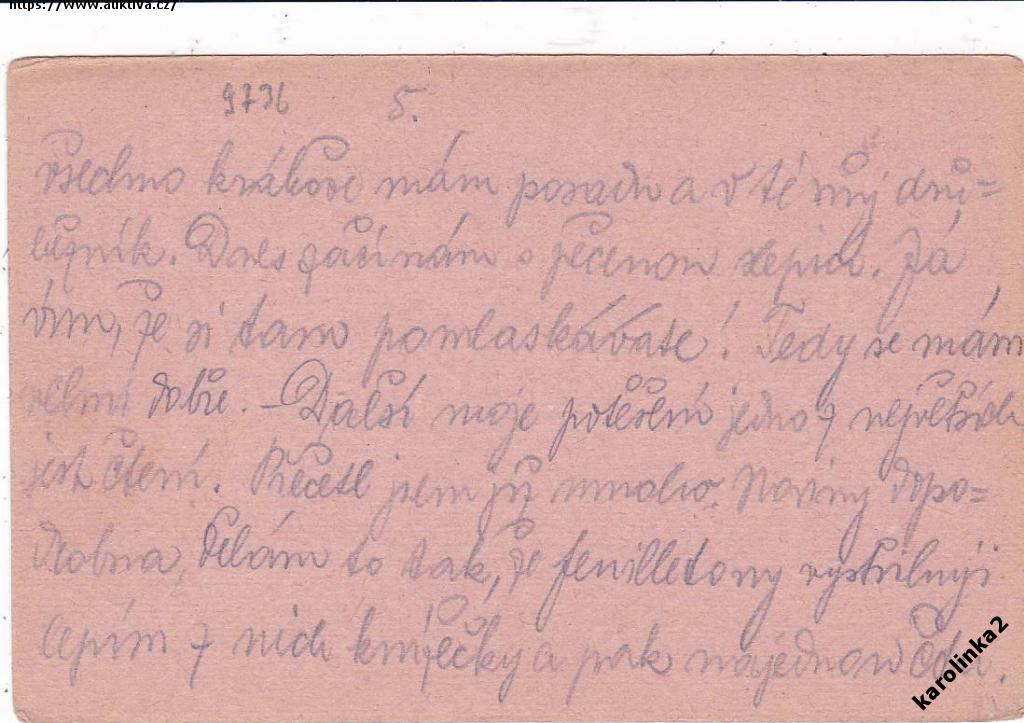 https://www.auktiva.cz/
9736 5.
všedmo krábove mám posadu a v té můj dru=
Dnes začínám s pečenou Já
vím, že si tam pomlaskáváte! Tedy se mám
velmi dobře. – Další moje potěšení jedno z největších
jest čtení. Přečetl jsem již mnoho. Noviny dopo=
drobna, dělám to tak, že feuilletony vystřihuji
lepím z nich knížečky a pak najednou čtu.
karolinka2